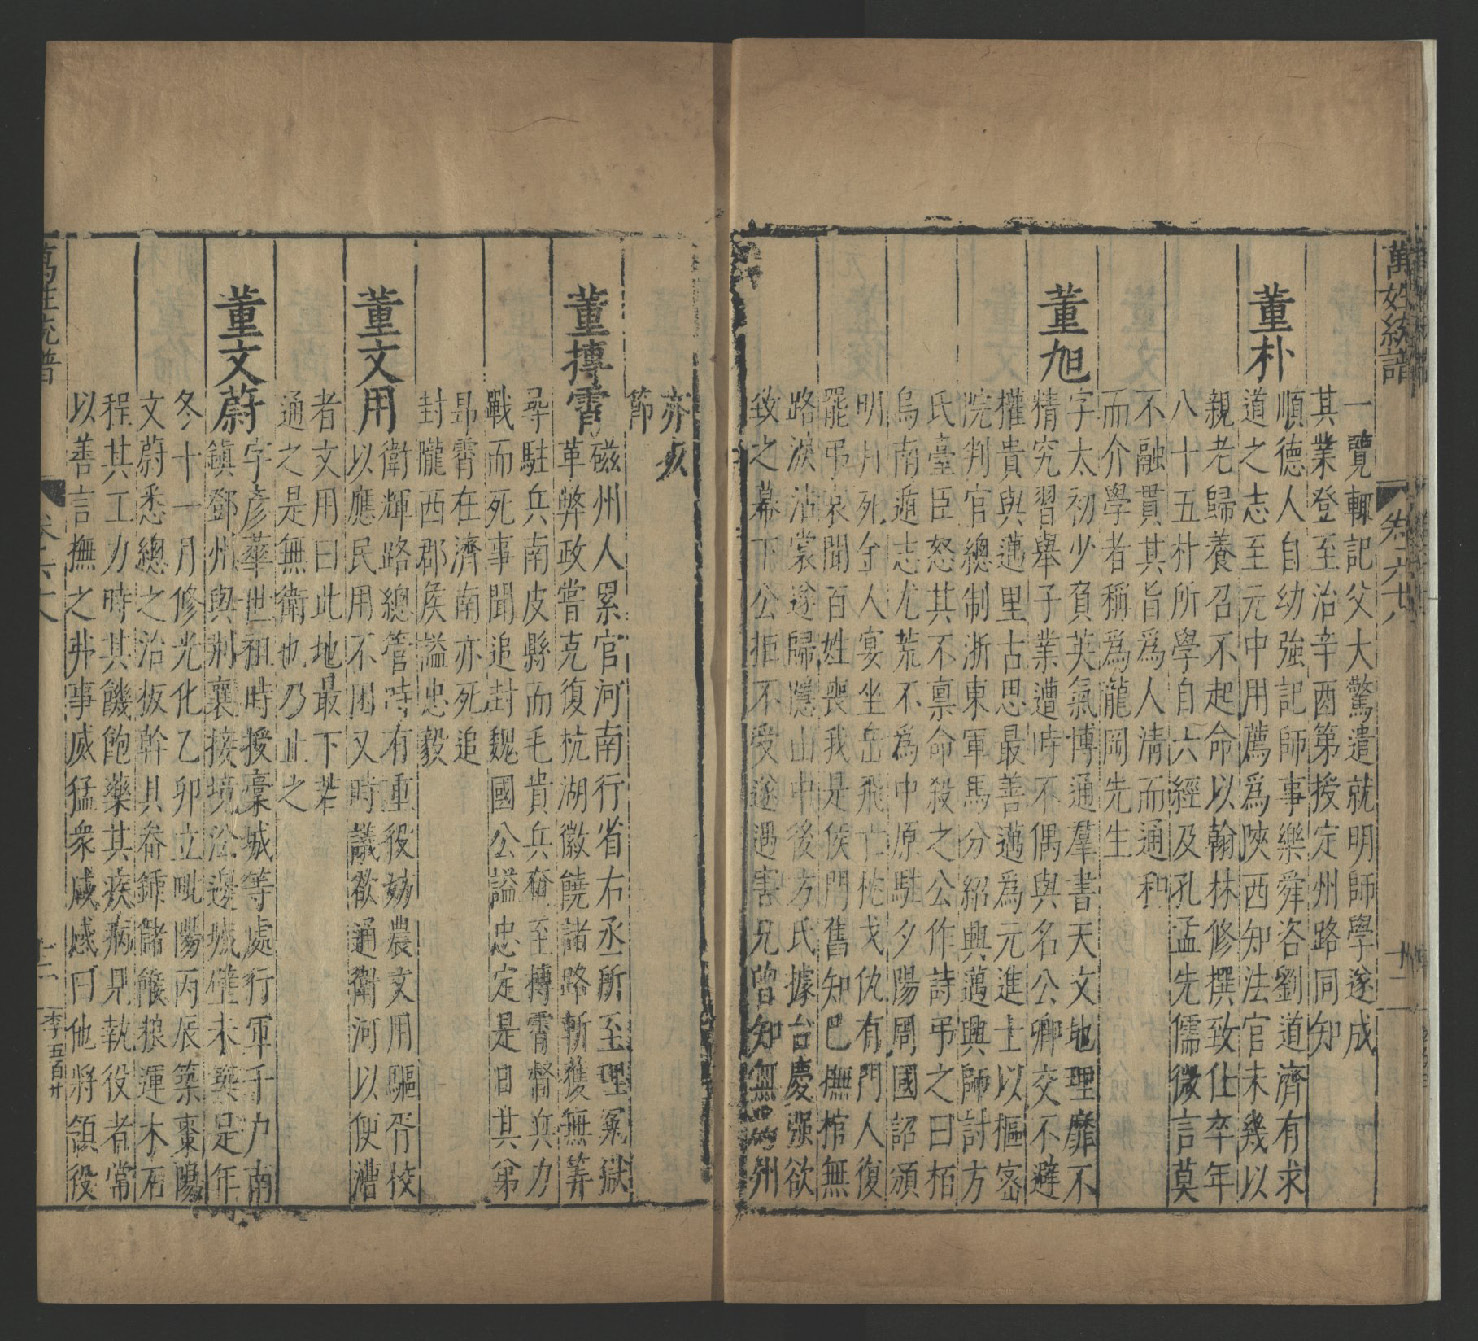 萬姓統譜
卷六十八
十二
一覽輒記父大驚遣就明師學遂成
其業登至治辛酉第授定州路同知
董朴
順德人自幼強記師事樂舜咨劉道濟有求
道之志至元中用薦爲陝西知法官未幾以
親老歸養召不起命以翰林修撰致仕卒年
八十五朴所學自六經及孔孟先儒微言莫
不融貫其旨爲人清而通和
而介學者稱爲龍岡先生
董旭
字太初少負英氣博通羣書天文地理靡不
精究習舉子業遭時不偶與名公卿交不避
權貴與邁里古思最善邁爲元進士以樞密
院判官總制浙東軍馬分紹興邁興師討方
氏臺臣怒其不禀命殺之公作詩弔之曰栢
烏南遁志尤荒不爲中原駐夕陽周國詔頒
明月死金人宴坐岳飛亡枕戈仇有門人復
罷弔哀聞百姓喪我是侯門舊知巴撫棺無
路淚沾裳遂歸隱山中後方氏據台慶强欲
致之幕下公拒不受遂遇害兄曾知無爲州
亦以
節
董摶霄
磁州人累官河南行省右丞所至理冤獄
革弊政嘗克復杭湖徽饒諸路斬獲無筭
尋駐兵南皮縣而毛貴兵奄至摶霄督兵力
戰而死事聞追封魏國公謚忠定是日其弟
昻霄在濟南亦死追
封隴西郡侯謚忠毅
董文用
衛輝路總管時有重役妨農文用驅胥校
以應民用不困又時議欲通衛河以便漕
者文用曰此地最下若
通之是無衛也乃止之
董文蔚
字彥華世祖時授槀城等處行軍千户南
鎮鄧州與荆襄接境沿邊城壁未築是年
冬十一月修光化乙卯立毗陽丙辰築棗陽
文蔚悉總之治板幹具畚鍤儲餱粮運木石
程其工力時其饑飽藥其疾病見執役者常
以善言撫之并事威猛衆咸感曰他將領役
萬姓統譜
卷六十八
十二
李五百廿